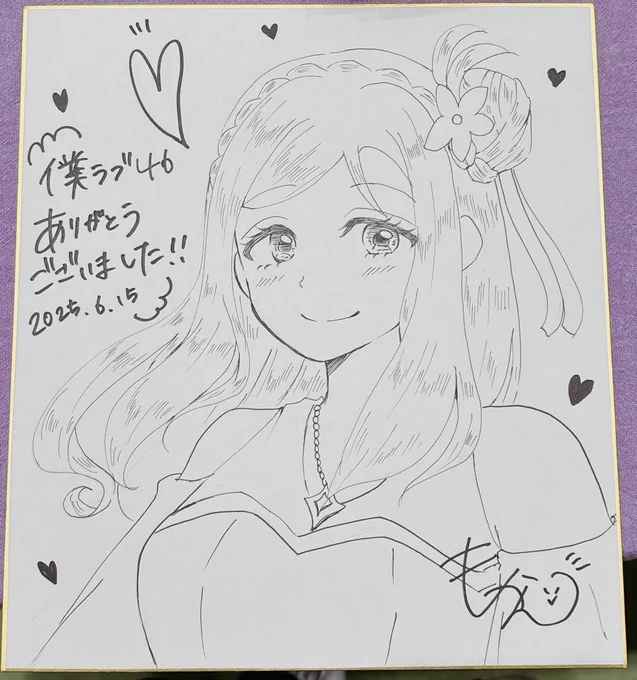 僕ラブ46
ありがとう
ございました!!
2025.6.15